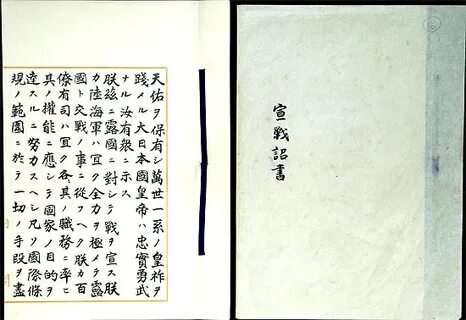 天佑ヲ保有シ萬世一系ノ皇祚ヲ
踐メル大日本國皇帝ハ忠實勇武
ナル汝有衆ニ示ス
朕茲ニ露國ニ對シテ戰ヲ宣ス朕
カ陸海軍ハ宜ク全力ヲ極メテ露
國ト交戰ノ事ニ從フヘク朕カ百
僚有司ハ宜ク各々其ノ職務ニ率ヒ
其ノ權能ニ應シテ國家ノ目的ヲ
達スルニ努力スヘシ凡ソ國際條
規ノ範圍ニ於テ一切ノ手段ヲ盡
宣戰詔書